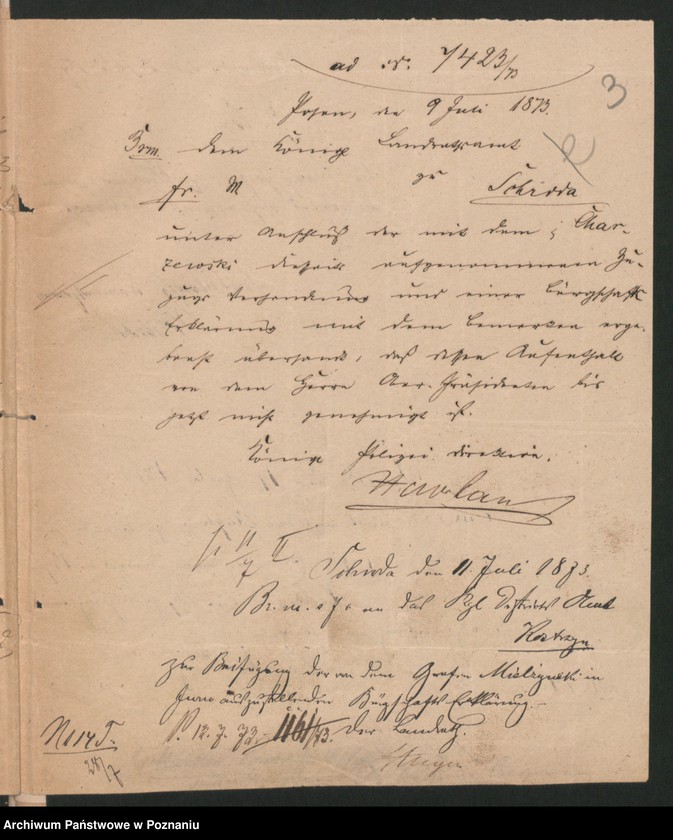 ad Nr. 7423/73
3
Posen, den 9 Juli 1873.
Brm. dem Königl Landrathsamt
fr. M zu Schroda
unter Anschluß der mit dem Char-
zewski dieseits aufgenommenen Zu-
zugs Verhandlung und einer Bürgschafts
Erklärung mit dem Bemerken erge-
benst übersandt, daß dessen Aufenthalt
von dem Herrn Ober-Präsidenten bis
jetzt nicht genehmigt ist.
Königl Polizei Direktion.
11/7 II.
Schroda den 11. Juli 1873.
Br. m. an das Kgl Distrikts Amt
Kostrzyn
zur Beifügung der von dem Grafen Mielzynski in
Iwno auszustellenden Bürgschafts Erklärung.
P. 12. 7. 73. 1161/73. Der Landrath.
N 114 J.
24/7
Archiwum Państwowe w Poznaniu